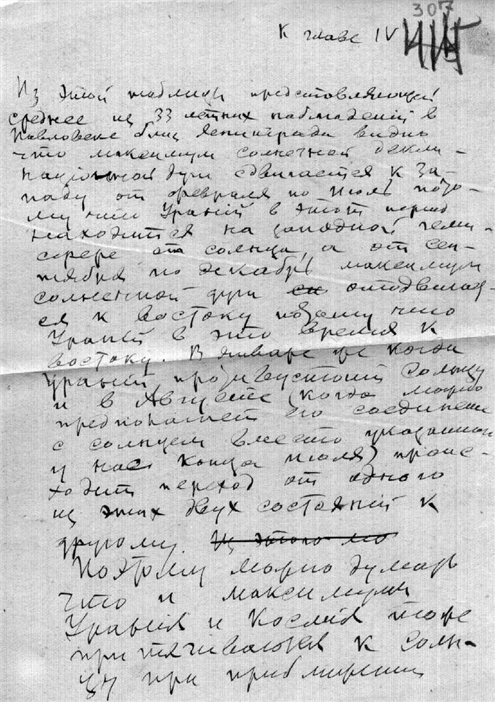 307
К главе IV
Из этой таблицы представляющей
среднее из 33 летних наблюдений в
Павловске близ Ленинграда видно
что максимум солнечной декли-
национной дуги сдвигается к За-
паду от февраля по Июль пото-
му что Ураний в этот период
находится на западной геми-
сфере от солнца, а от сен-
тября по декабрь максимум
солнечной дуги отодвигает-
ся к востоку потому что
Ураний в это время к
востоку. В январе же когда
Ураний противустоит Солнцу
и в Августе (когда можно
предполагать его соединение
с солнцем вместо указанного
у нас конца июля) проис-
ходит переход от одного
из этих двух состояний к
другому. Из этого мо
Поэтому можно думать
что и максимум
Урания и Космия тоже
притягиваются к солн-
цу при приближении